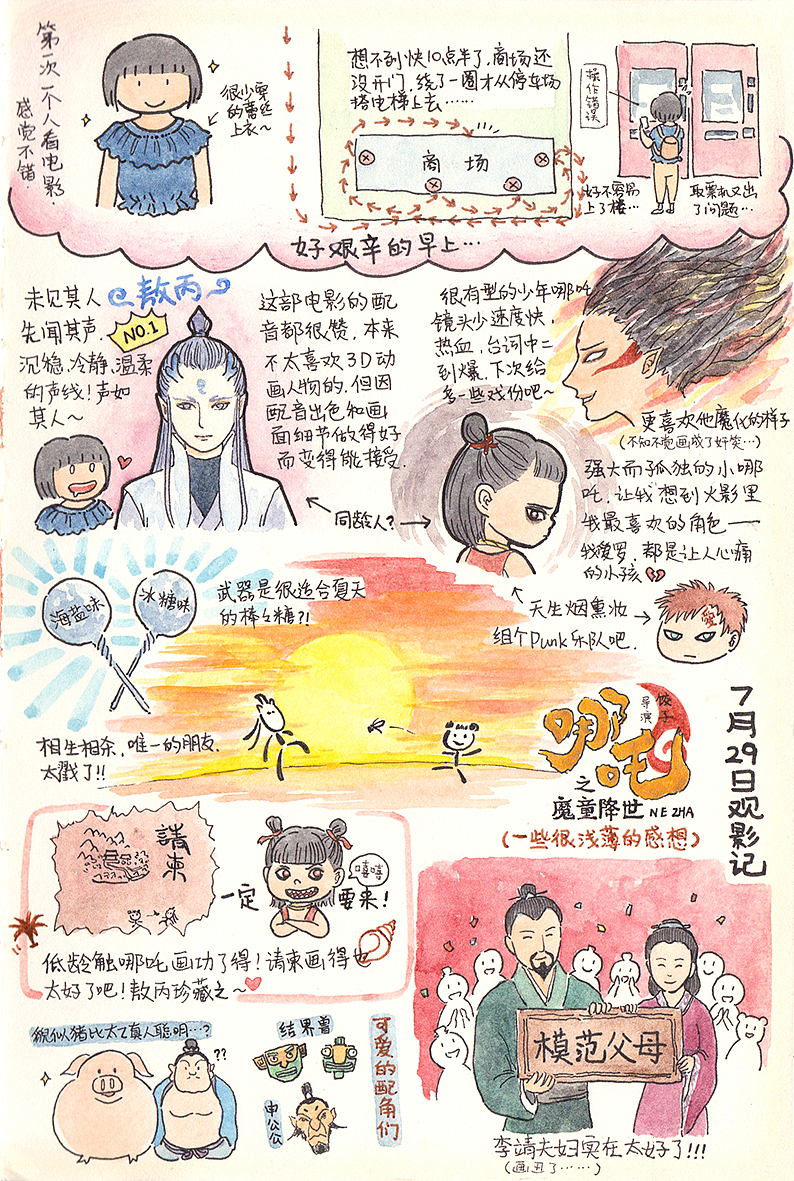 第一次一个人看电影
感觉不错
很小束
的蕾丝
上衣~
想不到快10点半了,商场还
没开门,绕了一圈才从停车场
搭电梯上去……
商场
操作错误
好不容易
上了楼…
取票机又出
了问题…
好艰辛的早上…
未见其人
先闻其声
沉稳、冷静、温柔
的声线!声如
其人~
敖丙
NO.1
这部电影的配
音都很赞,本来
不太喜欢3D动
画人物的,但因
配音出色和画
面细节做得好
而变得能接受.
很有型的少年哪吒
镜头少速度快
热血,台词中二
到爆,下次给
多一些戏份吧~
更喜欢他魔化的样子
(不知不觉画成了奸笑…)
同龄人?
强大而孤独的小哪
吒,让我想到火影里
我最喜欢的角色——
我爱罗,都是让人心痛
的小孩
天生烟熏妆
组个Punk乐队吧.
愛
海盐味
冰糖味
武器是很适合夏天
的棒棒糖?!
相生相杀,唯一的朋友,
太戳了!!
导演
饺子
哪吒
之
魔童降世 NE ZHA
(一些很浅薄的感想)
7月29日观影记
請柬
一定
要来!
嘻嘻
低龄触哪吒画功了得!请柬画得也
太好了吧!敖丙珍藏之~
貌似猪比太乙真人聪明…?
??
结界兽
申公公
可爱的配角们
模范父母
李靖夫妇实在太好了!!!
(画丑了……)